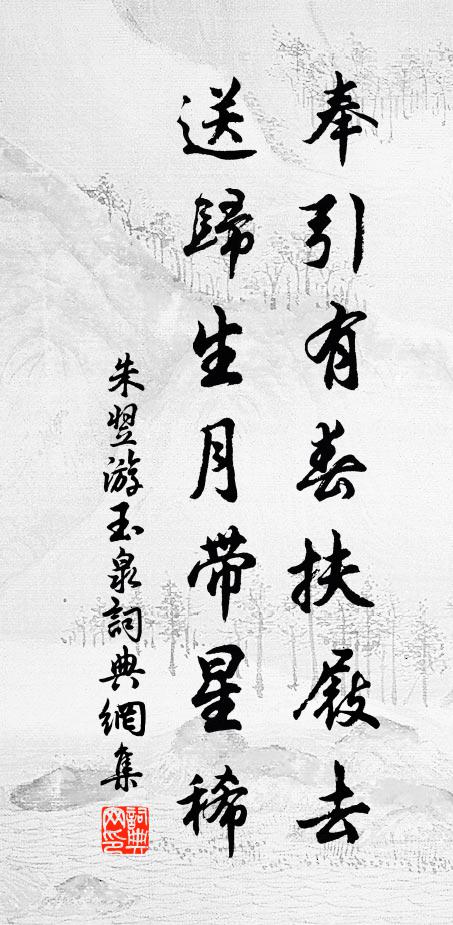 奉引有春扶屐去
送歸生月帶星稀
朱翌游玉泉詞典網集
詞典
网印